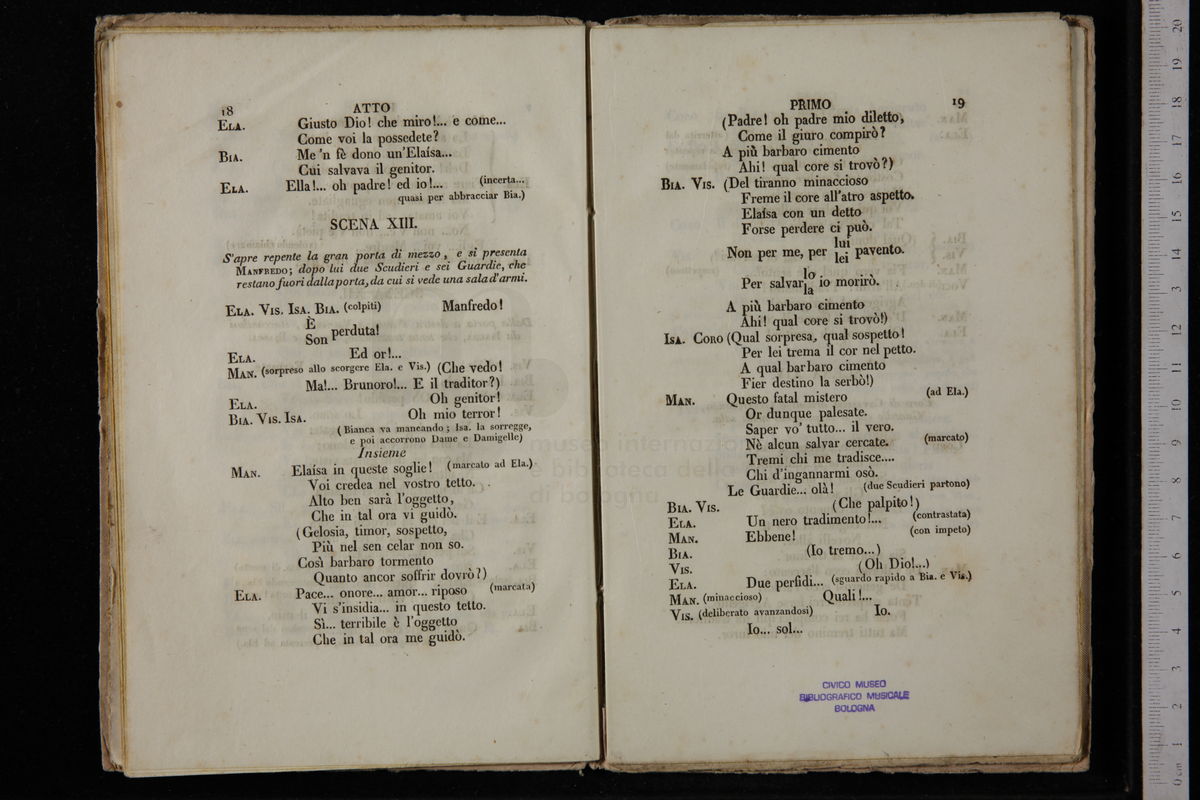 18
ATTO
ELA. Giusto Dio! che miro!... e come...
Come voi la possedete?
BIA. Me 'n fè dono un'Elaísa...
Cui salvava il genitor.
ELA. Ella!... oh padre! ed io!... (incerta...
quasi per abbracciar Bia.)
SCENA XIII.
S'apre repente la gran porta di mezzo, e si presenta
MANFREDO; dopo lui due Scudieri e sei Guardie, che
restano fuori dalla porta, da cui si vede una sala d'armi.
ELA. VIS. ISA. BIA. (colpiti) Manfredo!
È
Son perduta!
ELA. Ed or!...
MAN. (sorpreso allo scorgere Ela. e Vis.) (Che vedo!
Ma!... Brunoro!... E il traditor?)
ELA. Oh genitor!
BIA. VIS. ISA. Oh mio terror!
(Bianca va mancando; Isa. la sorregge,
e poi accorrono Dame e Damigelle)
Insieme
MAN. Elaísa in queste soglie! (marcato ad Ela.)
Voi credea nel vostro tetto.
Alto ben sarà l'oggetto,
Che in tal ora vi guidò.
(Gelosia, timor, sospetto,
Più nel sen celar non so.
Così barbaro tormento
Quanto ancor soffrir dovrò?)
ELA. Pace... onore... amor... riposo (marcata)
Vi s'insidia... in questo tetto.
Sì... terribile è l'oggetto
Che in tal ora me guidò.
PRIMO
19
(Padre! oh padre mio diletto,
Come il giuro compirò?
A più barbaro cimento
Ahi! qual core si trovò?)
BIA. VIS. (Del tiranno minaccioso
Freme il core all'atro aspetto.
Elaísa con un detto
Forse perdere ci può.
lui
Non per me, per lei pavento.
lo
Per salvarla io morirò.
A più barbaro cimento
Ahi! qual core si trovò!)
ISA. CORO (Qual sorpresa, qual sospetto!
Per lei trema il cor nel petto.
A qual barbaro cimento
Fier destino la serbò!)
MAN. Questo fatal mistero (ad Ela.)
Or dunque palesate.
Saper vo' tutto... il vero.
Nè alcun salvar cercate. (marcato)
Tremi chi me tradisce....
Chi d'ingannarmi osò.
Le Guardie... olà! (due Scudieri partono)
BIA. VIS. (Che palpito!)
ELA. Un nero tradimento!... (contrastata)
MAN. Ebbene! (con impeto)
BIA. (Io tremo...)
VIS. (Oh Dio!...)
ELA. Due perfidi... (sguardo rapido a Bia. e Vis.)
MAN. (minaccioso) Quali!...
VIS. (deliberato avanzandosi) Io.
Io... sol...
CIVICO MUSEO
BIBLIOGRAFICO MUSICALE
BOLOGNA
museo internazio
e biblioteca della
di bologna